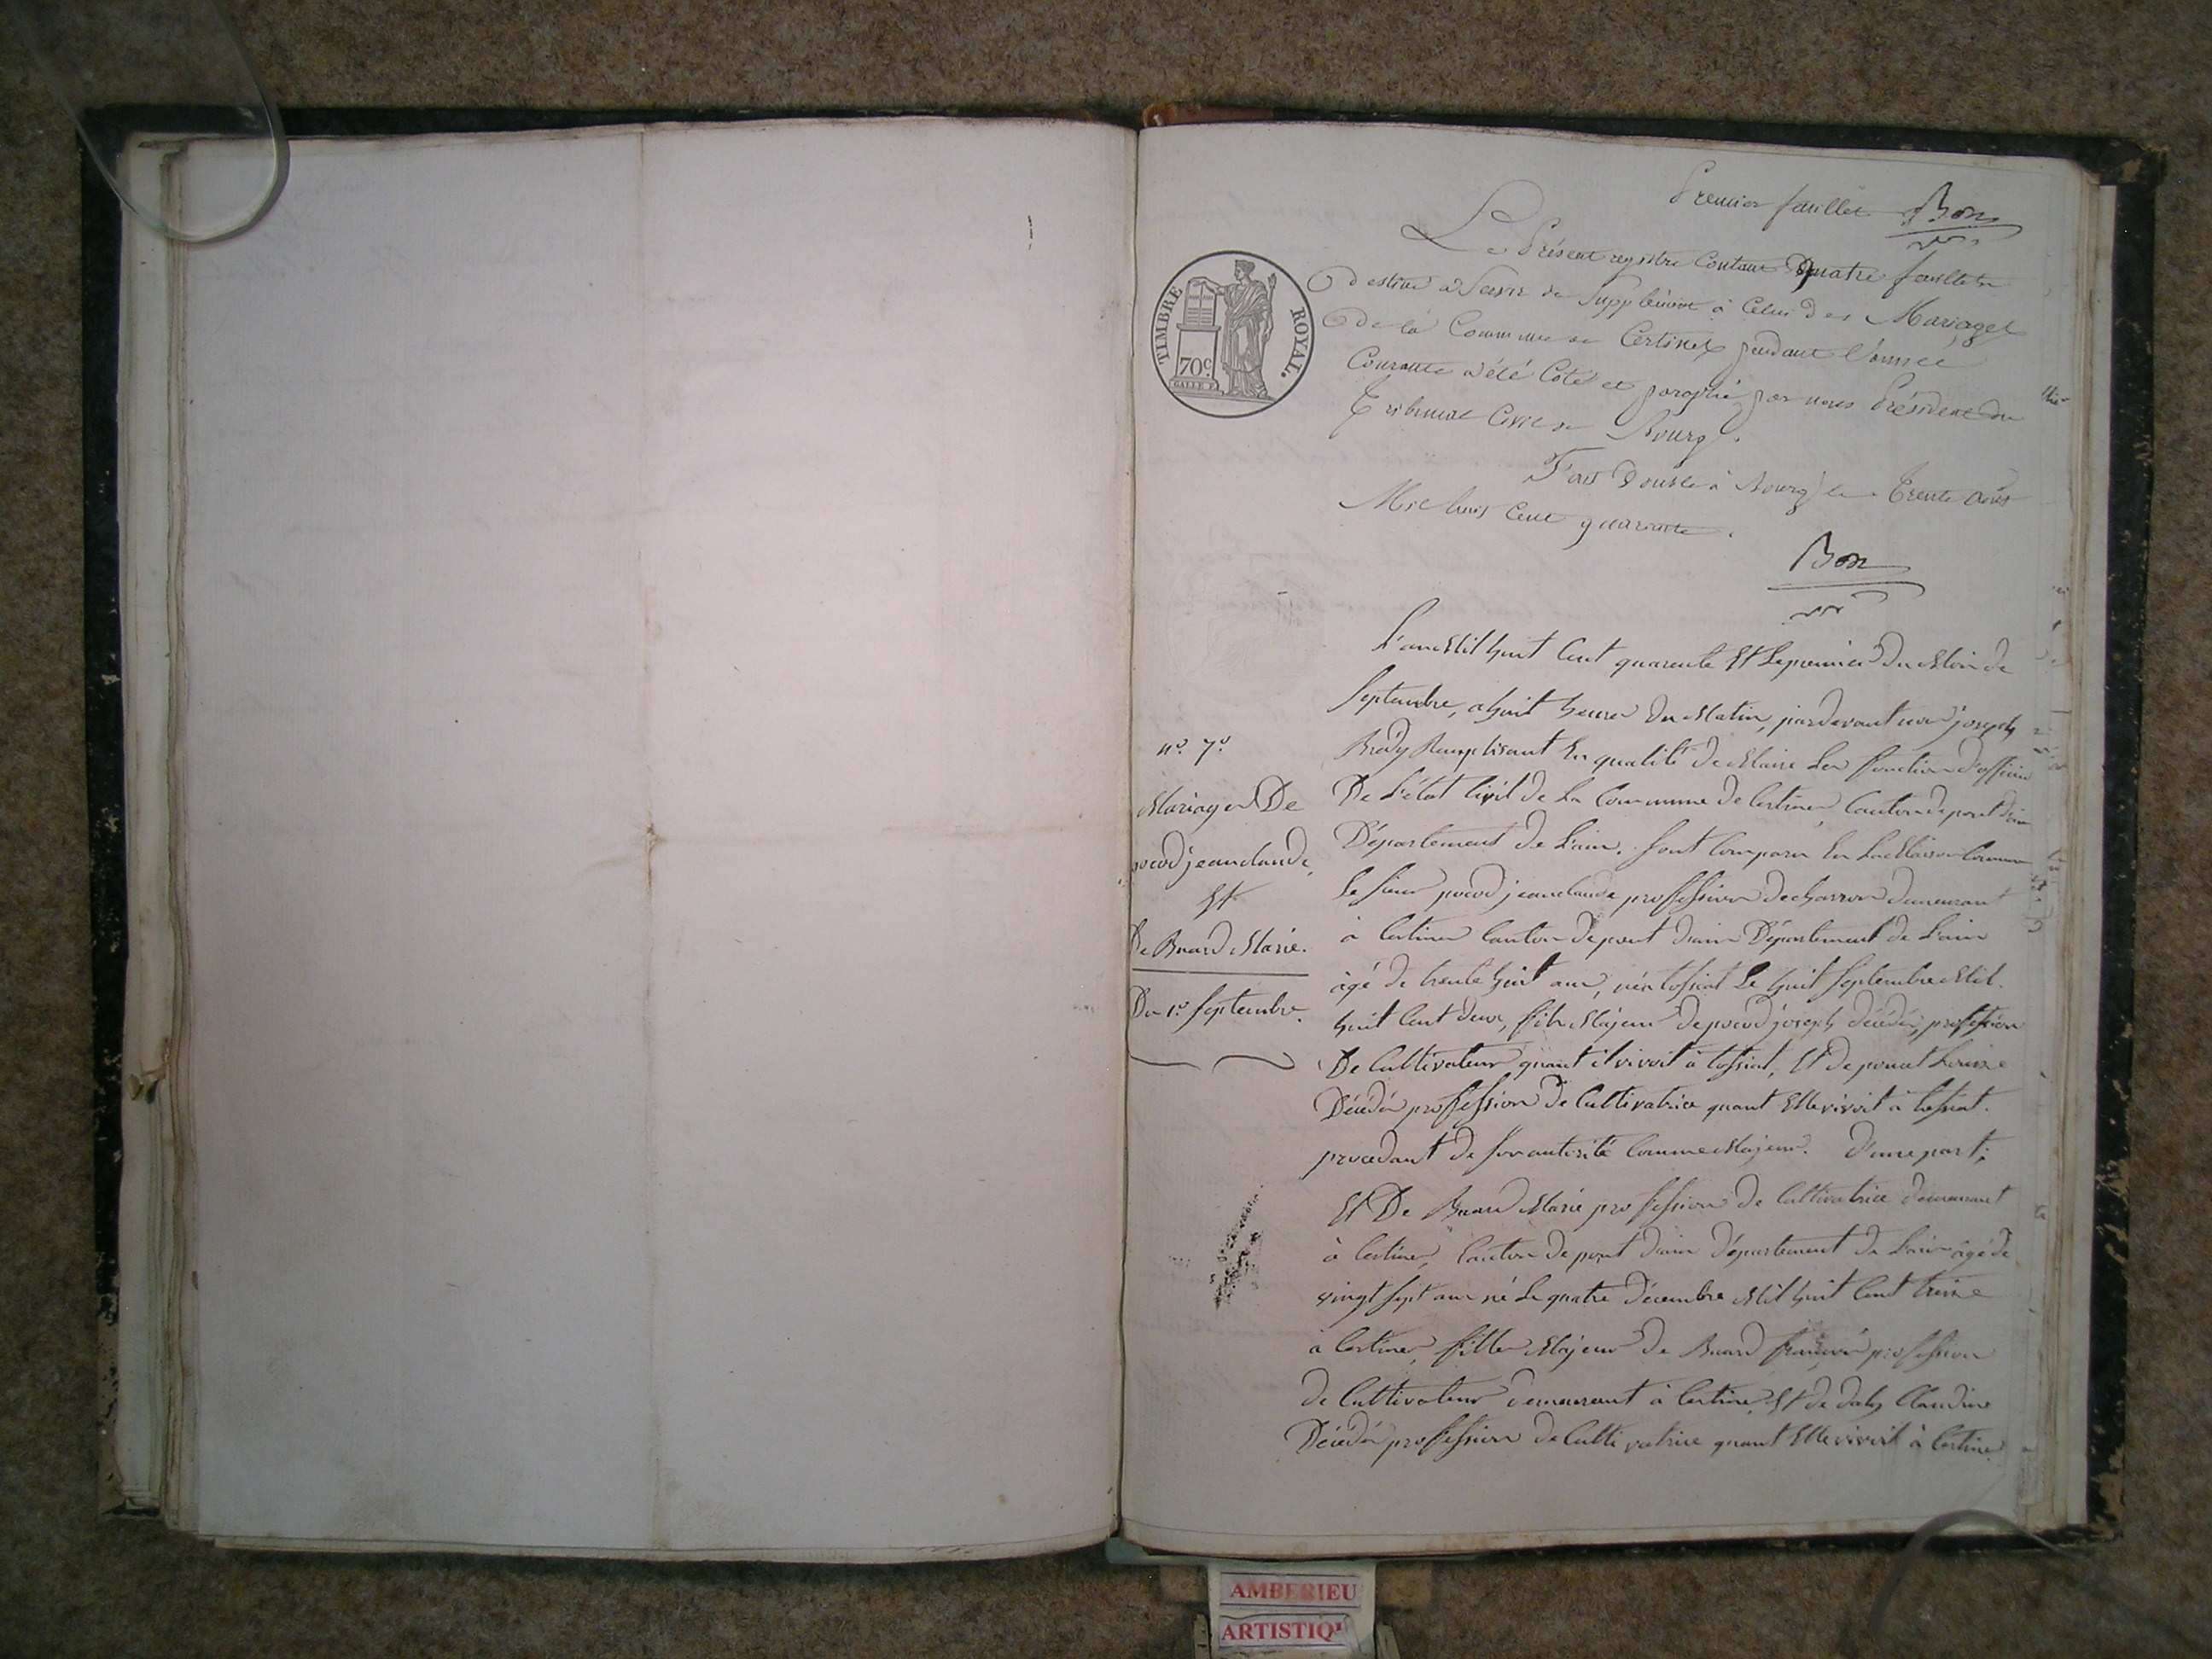 Premier feuillet Bon
Le Présent registre Contant Quatre feuillets
destiné a Servir de Supplément à Celui des Mariages
de la Commune de Certines pendant l'année
Courante a été Coté et paraphé par nous Président du
Tribunal Civil de Bourg.
Fait Double à Bourg le Trente août
Mil huit Cent quarante.
Bon
TIMBRE ROYAL.
70c.
nº. 7º.
Mariage De
pocod jeanclaude,
Et
De Buard Marie.
Du 1er Septembre.
L'an Mil huit Cent quarante Et Le premier du Mois de
Septembre, a huit heures du Matin, pardevant nous joseph
Brody Remplisant En qualité de Maire Les fonction d'officier
De L'état Civil de La Commune de Certines, Canton de pont d'ain
Département de L'ain. Sont Comparu En La Maison Commune
Le sieur pocod jeanclaude profession de charron demeurant
à Certines Canton de pont d'ain Département de L'ain
âgé de trente huit ans, né a tossiat Le huit Septembre Mil
huit Cent deux, fils Majeur de pocod joseph décédé, profession
De Cultivateur quant il vivoit à tossiat, Et de poncet Louise
Décédée profession de Cultivatrice quant Elle vivoit à tossiat.
procedant de son autorité Comme Majeur. D'une part;
Et De Buard Marie profession de Cultivatrice demeurant
à Certines, Canton de pont d'ain Département de L'ain âgé de
vingt sept ans né Le quatre Décembre Mil huit Cent treize
à Certines, fille Majeur de Buard françois profession
de Cultivateur demeurant à Certines Et de daly Claudine
Décédée profession de Cultivatrice quant Elle vivoit à Certines
AMBERIEU
ARTISTIQ